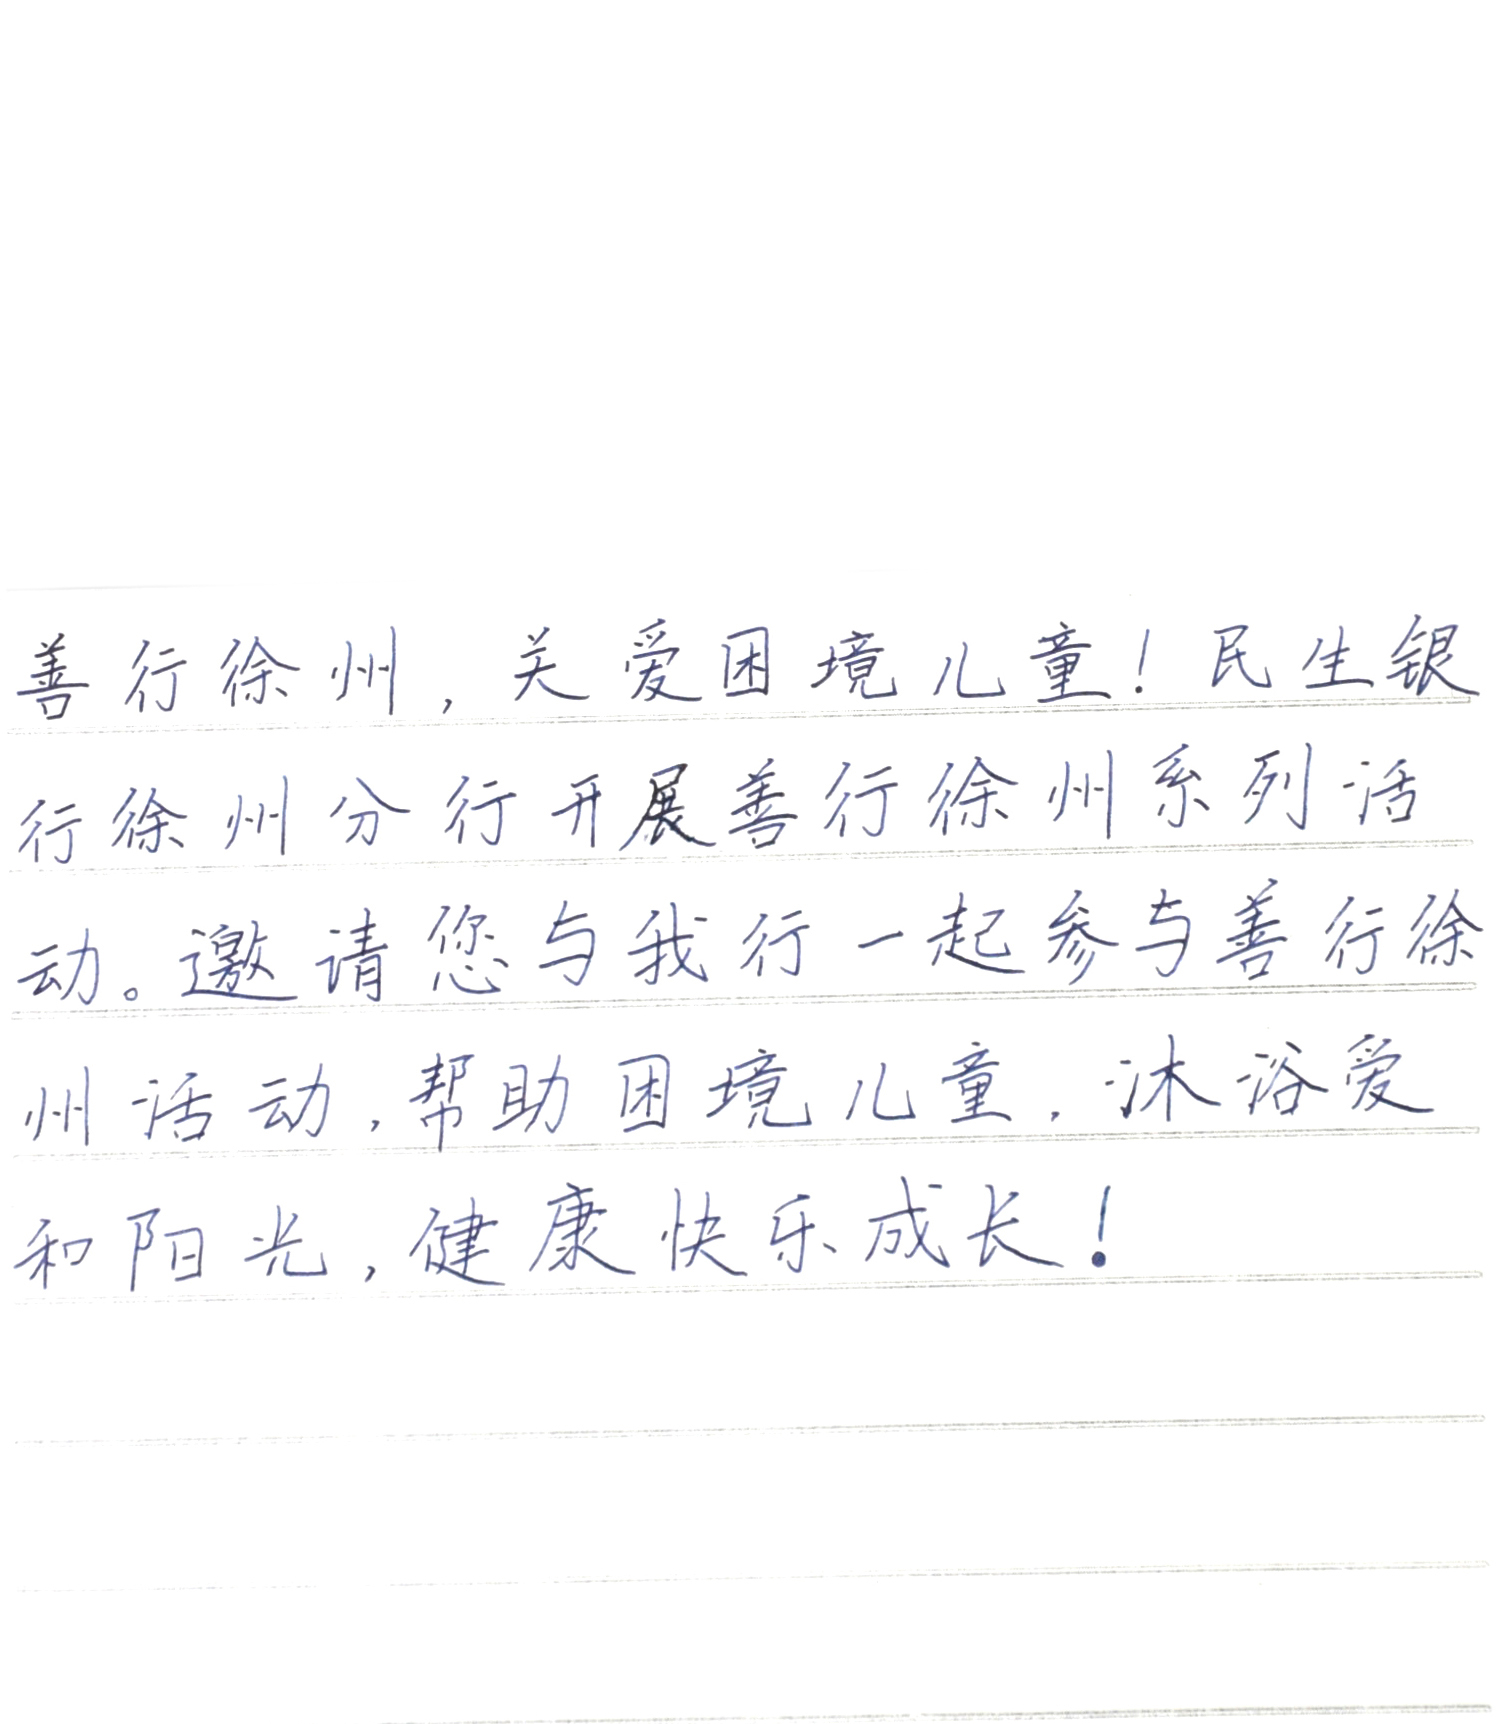 善行徐州，关爱困境儿童！民生银
行徐州分行开展善行徐州系列活
动。邀请您与我行一起参与善行徐
州活动，帮助困境儿童，沐浴爱
和阳光，健康快乐成长！